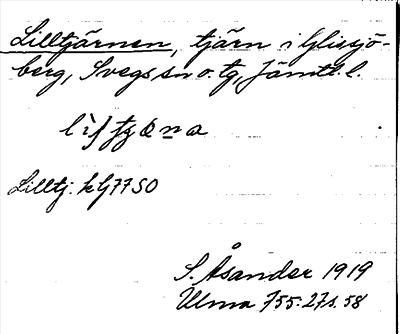 Lilltjärnen, tjärn i Glissjö-
berg, Svegs sn o. tg, Jämtl. l.
Lilltj. k G 77 SO
S. Åsander 1919
Ulma 755:27 s. 58